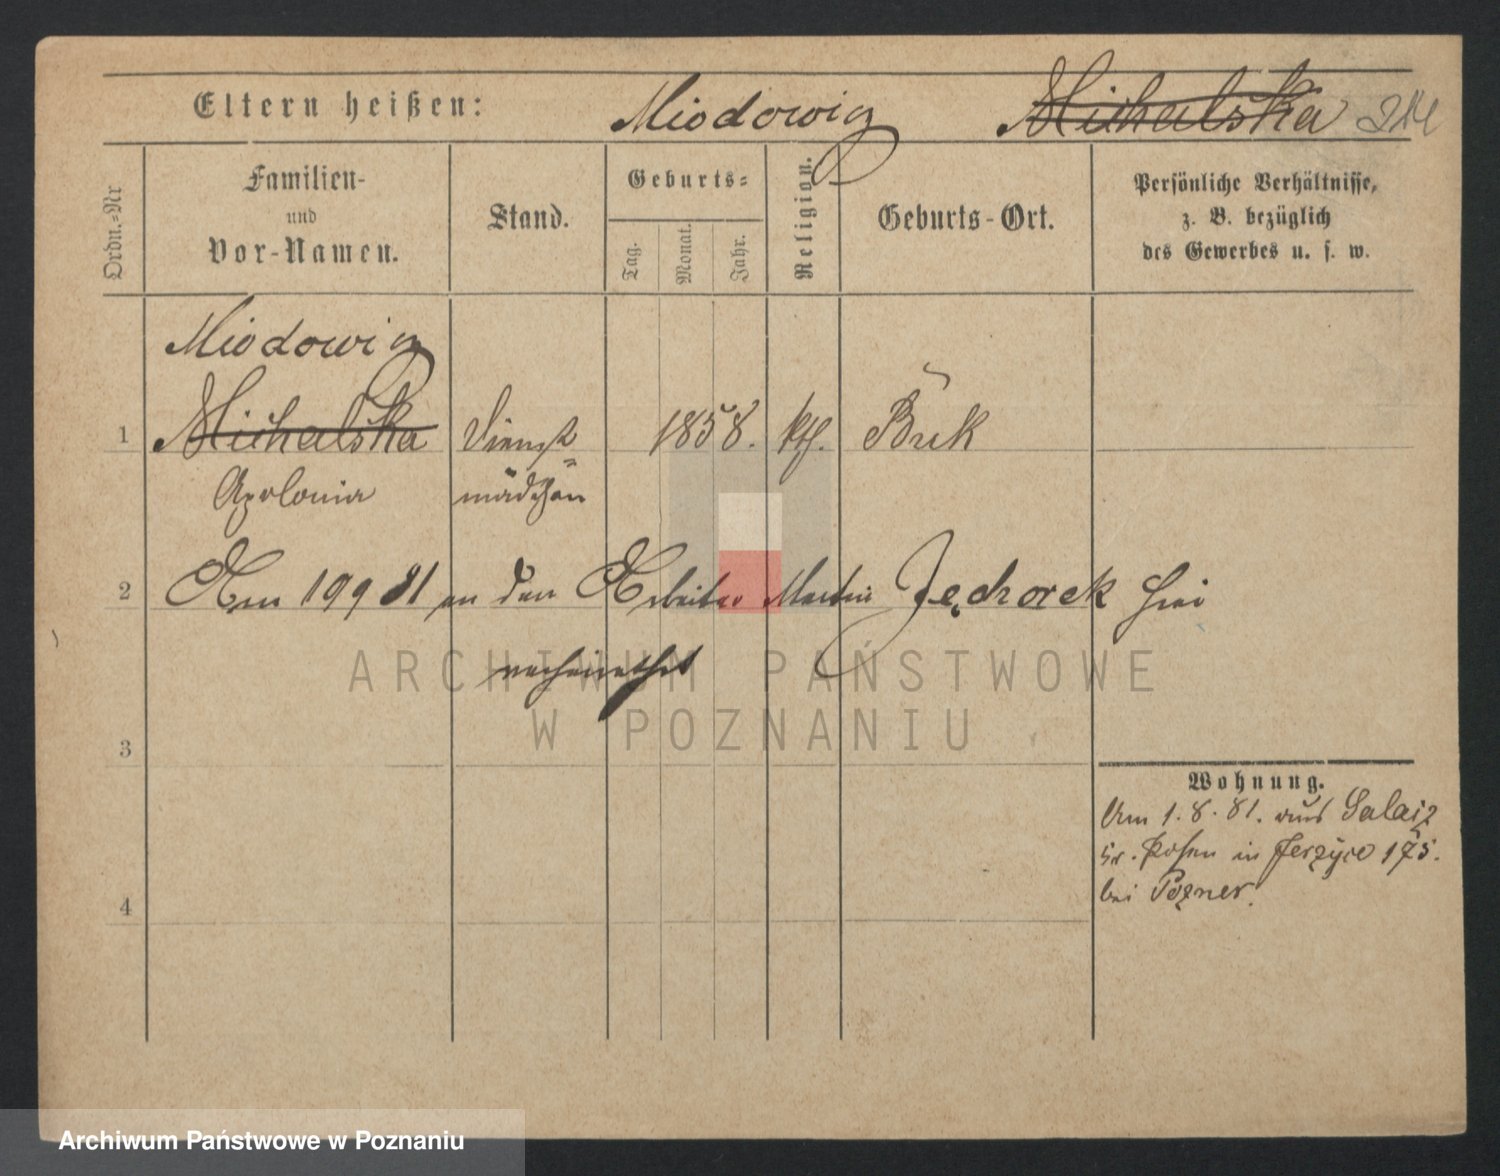 Eltern heißen: Miodowicz Michalska
Ordn.=Nr
Familien-
und
Vor-Namen.
Stand.
Geburts=
Tag.
Monat.
Jahr.
Religion.
Geburts-Ort.
Persönliche Verhältnisse,
z. B. bezüglich
des Gewerbes u. s. w.
Miodowicz
1 Michalska Dienst= 1858. kth. Buk
Apolonia mädchen
2 Am 19 9 81 an den Arbeiter Martin Jęchorek hier
verheirathet
ARCHIWUM PAŃSTWOWE
W POZNANIU
3
Wohnung.
Am 1.8.81. aus
Kr. Posen in Jerzyce 175.
bei Pozner.
4
Archiwum Państwowe w Poznaniu